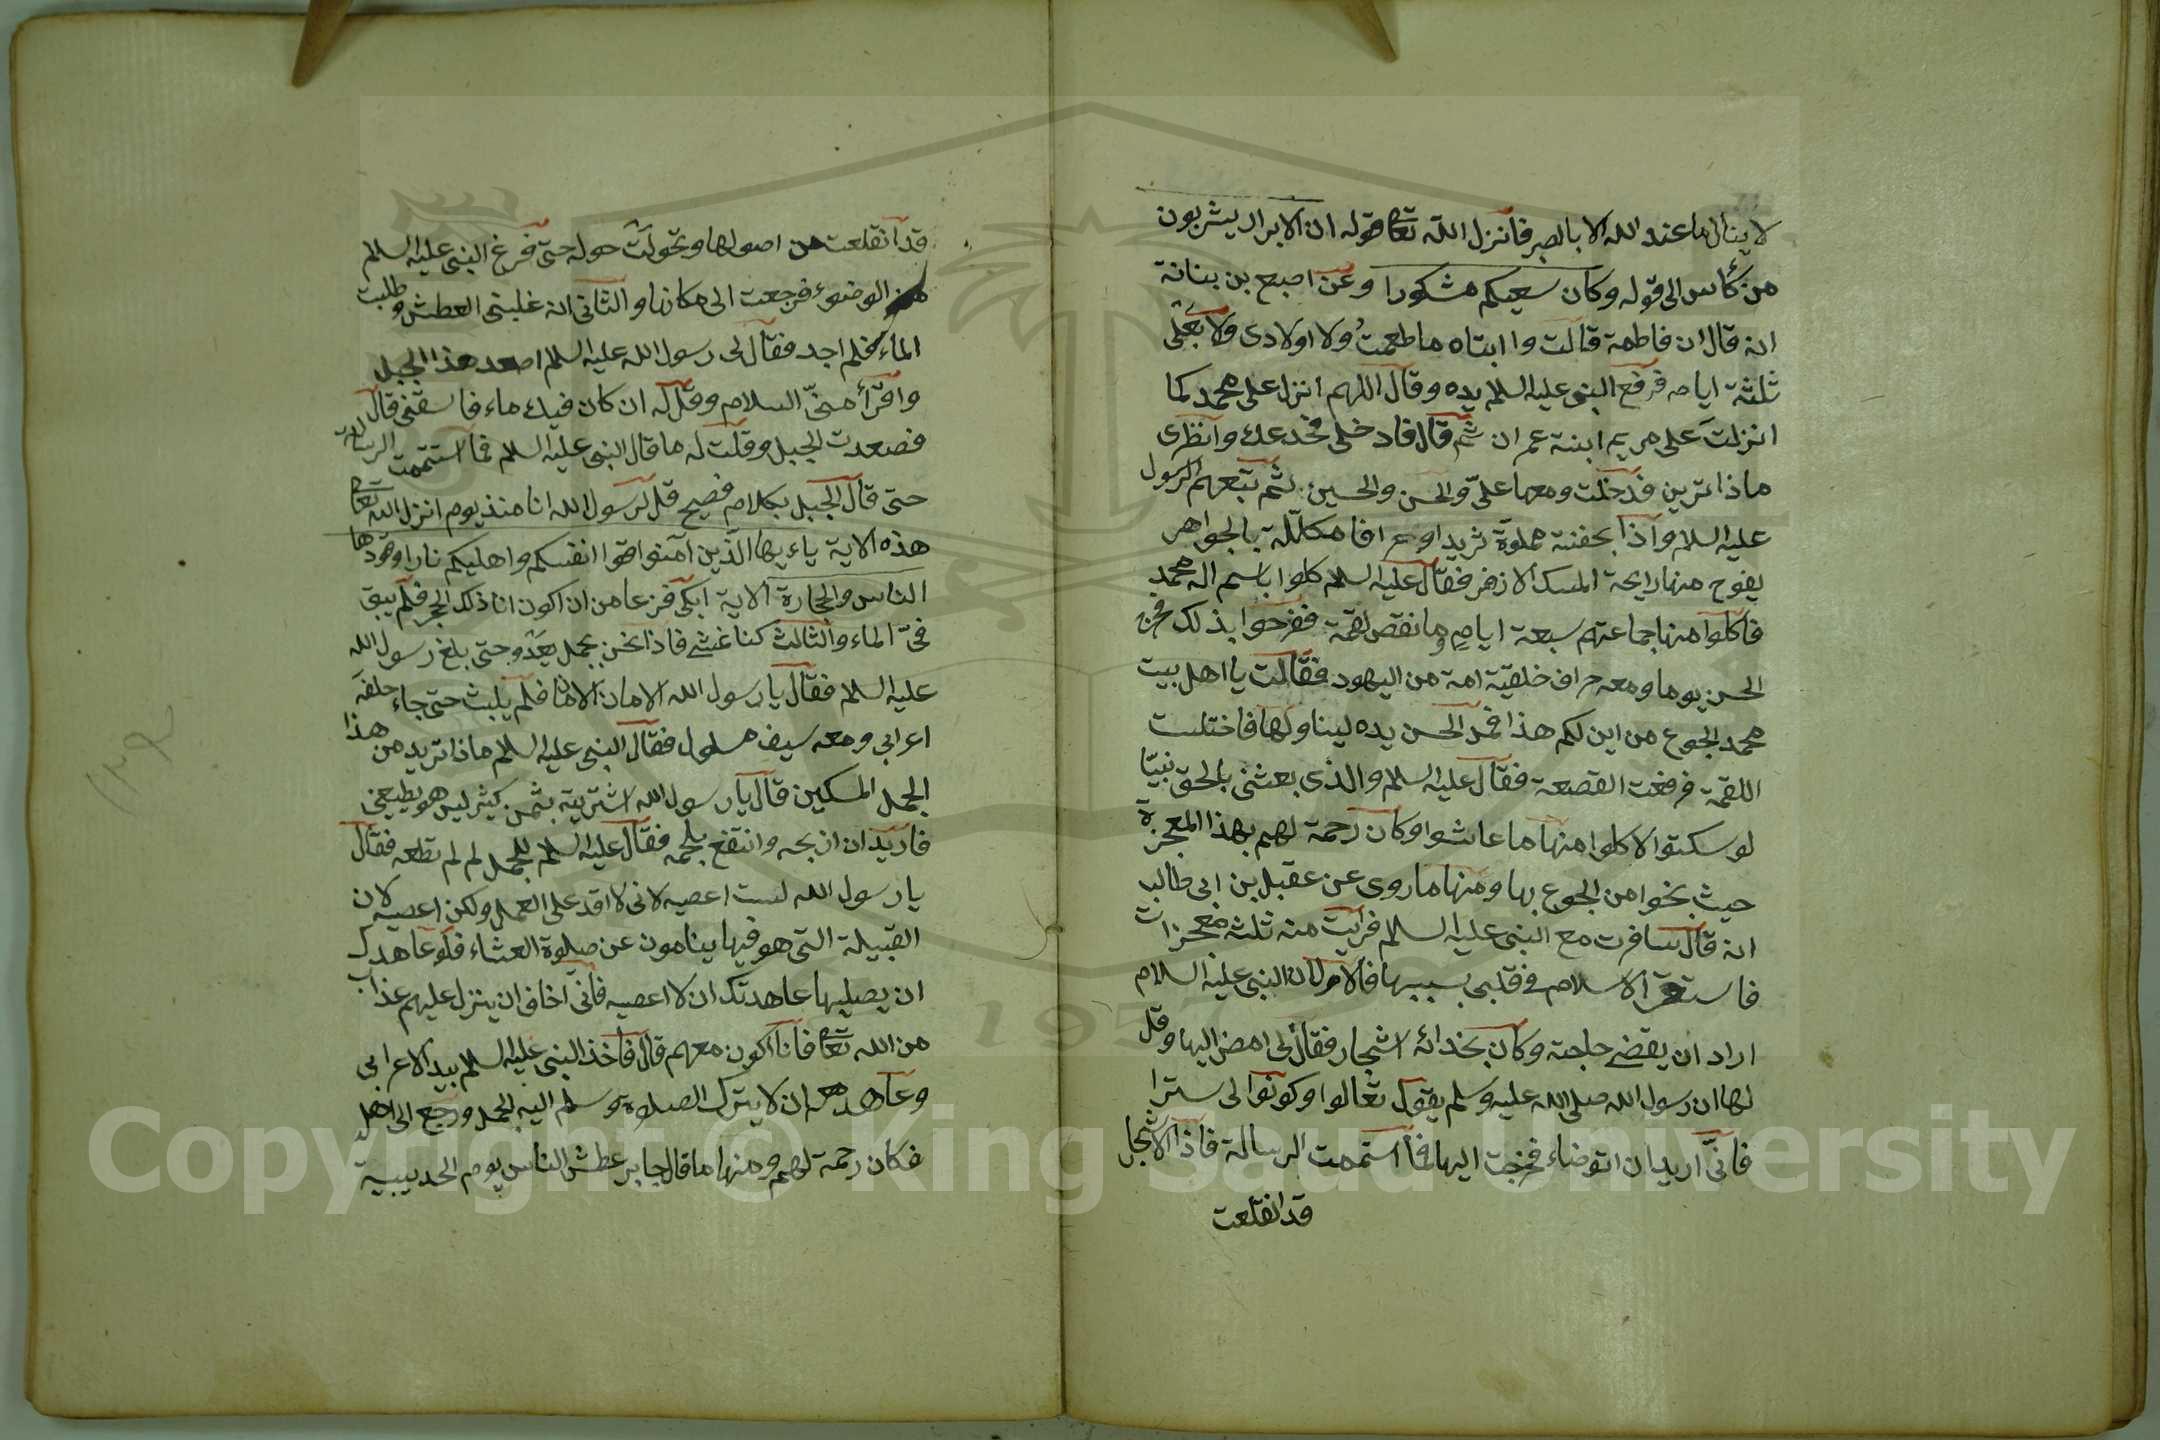 لا ينال ما عند الله الا بالصبر فانزل الله تعا قوله ان الابرار يشربون
من كأس الى قوله وكان سعيكم مشكورا وعن اصبع بن بنانة
انه قال ان فاطمة قالت وا ابتاه ما طعمت ولا اولادى ولا بعلى
ثلثة ايام فرفع النبى عليه السلام يده وقال اللهم انزل على محمد كما
انزلت على مريم ابنة عمران ثم قال فادخلى مخدعك وانظرى
ماذا ترين فدخلت ومعها علىّ والحسن والحسين ثم تبعهم الرسول
عليه السلام واذا بجفنة مملوّة ثريدا وعراقا مكللّة بالجواهر
يفوح منها رايحة المسك الازفر فقال عليه السلام كلوا باسم اله محمد
فاكلوا منها جماعتهم سبعة ايام وما نقص لقمة ففرحوا بذلك فخرج
الحسن يوما ومعه عراق خلقيّة امة من اليهود فقالت يا اهل بيت
محمد الجوع من اين لكم هذا فمد الحسن يده ليناولها فاختلست
اللقمة فرفعت القصعة فقال عليه السلام والذى بعثنى بالحق نبيّا
لو سكتوا لاكلوا منها ما عاشوا وكان رحمة لهم بهذا المعجزة
حيث نجوا من الجوع بها ومنها ما روى عن عقيل بن ابى طالب
انه قال سافرت مع النبى عليه السلام فرايت منه ثلثة معجزات
فاستقر الاسلام فى قلبى بسببها فالاول ان النبى عليه السلام
اراد ان يقضى حاجته وكان بحذائه اشجار فقال لى امض اليها وقل
لها ان رسول الله صلى الله عليه وسلم يقول تعالوا وكونوا لى سترا
فانّى اريد ان اتوضاء فخرجت اليها فما استتممت الرسالة فاذا الاشجار
قد انقلعت
قد انقلعت من اصولها وتحولت حوله حتى فرغ النبى عليه السلم
من الوضوء فرجعت الى مكانها والثانى انه غلبنى العطش وطلبت
الماء فلم اجد فقال لى رسول الله عليه السلم اصعد هذا الجبل
واقرأ منّى السلام وقل له ان كان فيك ماء فاسقنى قال
فصعدت الجبل وقلت له ما قال النبى عليه السلام فما استتممت الرسالة
حتى قال الجبل بكلام فصيح قل لرسول الله انا منذ يوم انزل الله تعا
هذه الاية ياءيها الذين آمنوا قوا انفسكم واهليكم نارا وقودها
الناس والحجارة الاية ابكى فزعا من ان اكون انا ذلك الحجر فلم يبق
فىّ الماء والثالث كنا نمشى فاذا نحن بجمل يعدو حتى بلغ رسول الله
عليه السلم فقال يا رسول الله الامان الامان فلم يلبث حتى جاء خلفه
اعرابى ومعه سيف مسلول فقال النبى عليه السلم ماذا تريد من هذا
الجمل المسكين قال يا رسول الله اشتريته بثمن كثير ليس هو يطيعنى
فاريد ان اذبحه وانتفع بلحمه فقال عليه السلم للجمل لم لم تطعه فقال
يا رسول الله لست اعصيه لانى لا اقدر على العمل ولكن اعصيه لان
القبيلة التى هو فيها ينامون عن صلوة العشاء فلو عاهدك
ان يصليها عاهدتك ان لا اعصيه فانى اخاف ان ينزل عليهم عذاب
من الله تعا فانا اكون معهم قال فاخذ النبى عليه السلم بيد الاعرابى
وعاهده ان لا يترك الصلوة وسلم اليه الجمل ورجع الى اهله
فكان رحمة لهم ومنها ما قال جابر عطش الناس يوم الحديبية
Copyright © King Saud University
1957